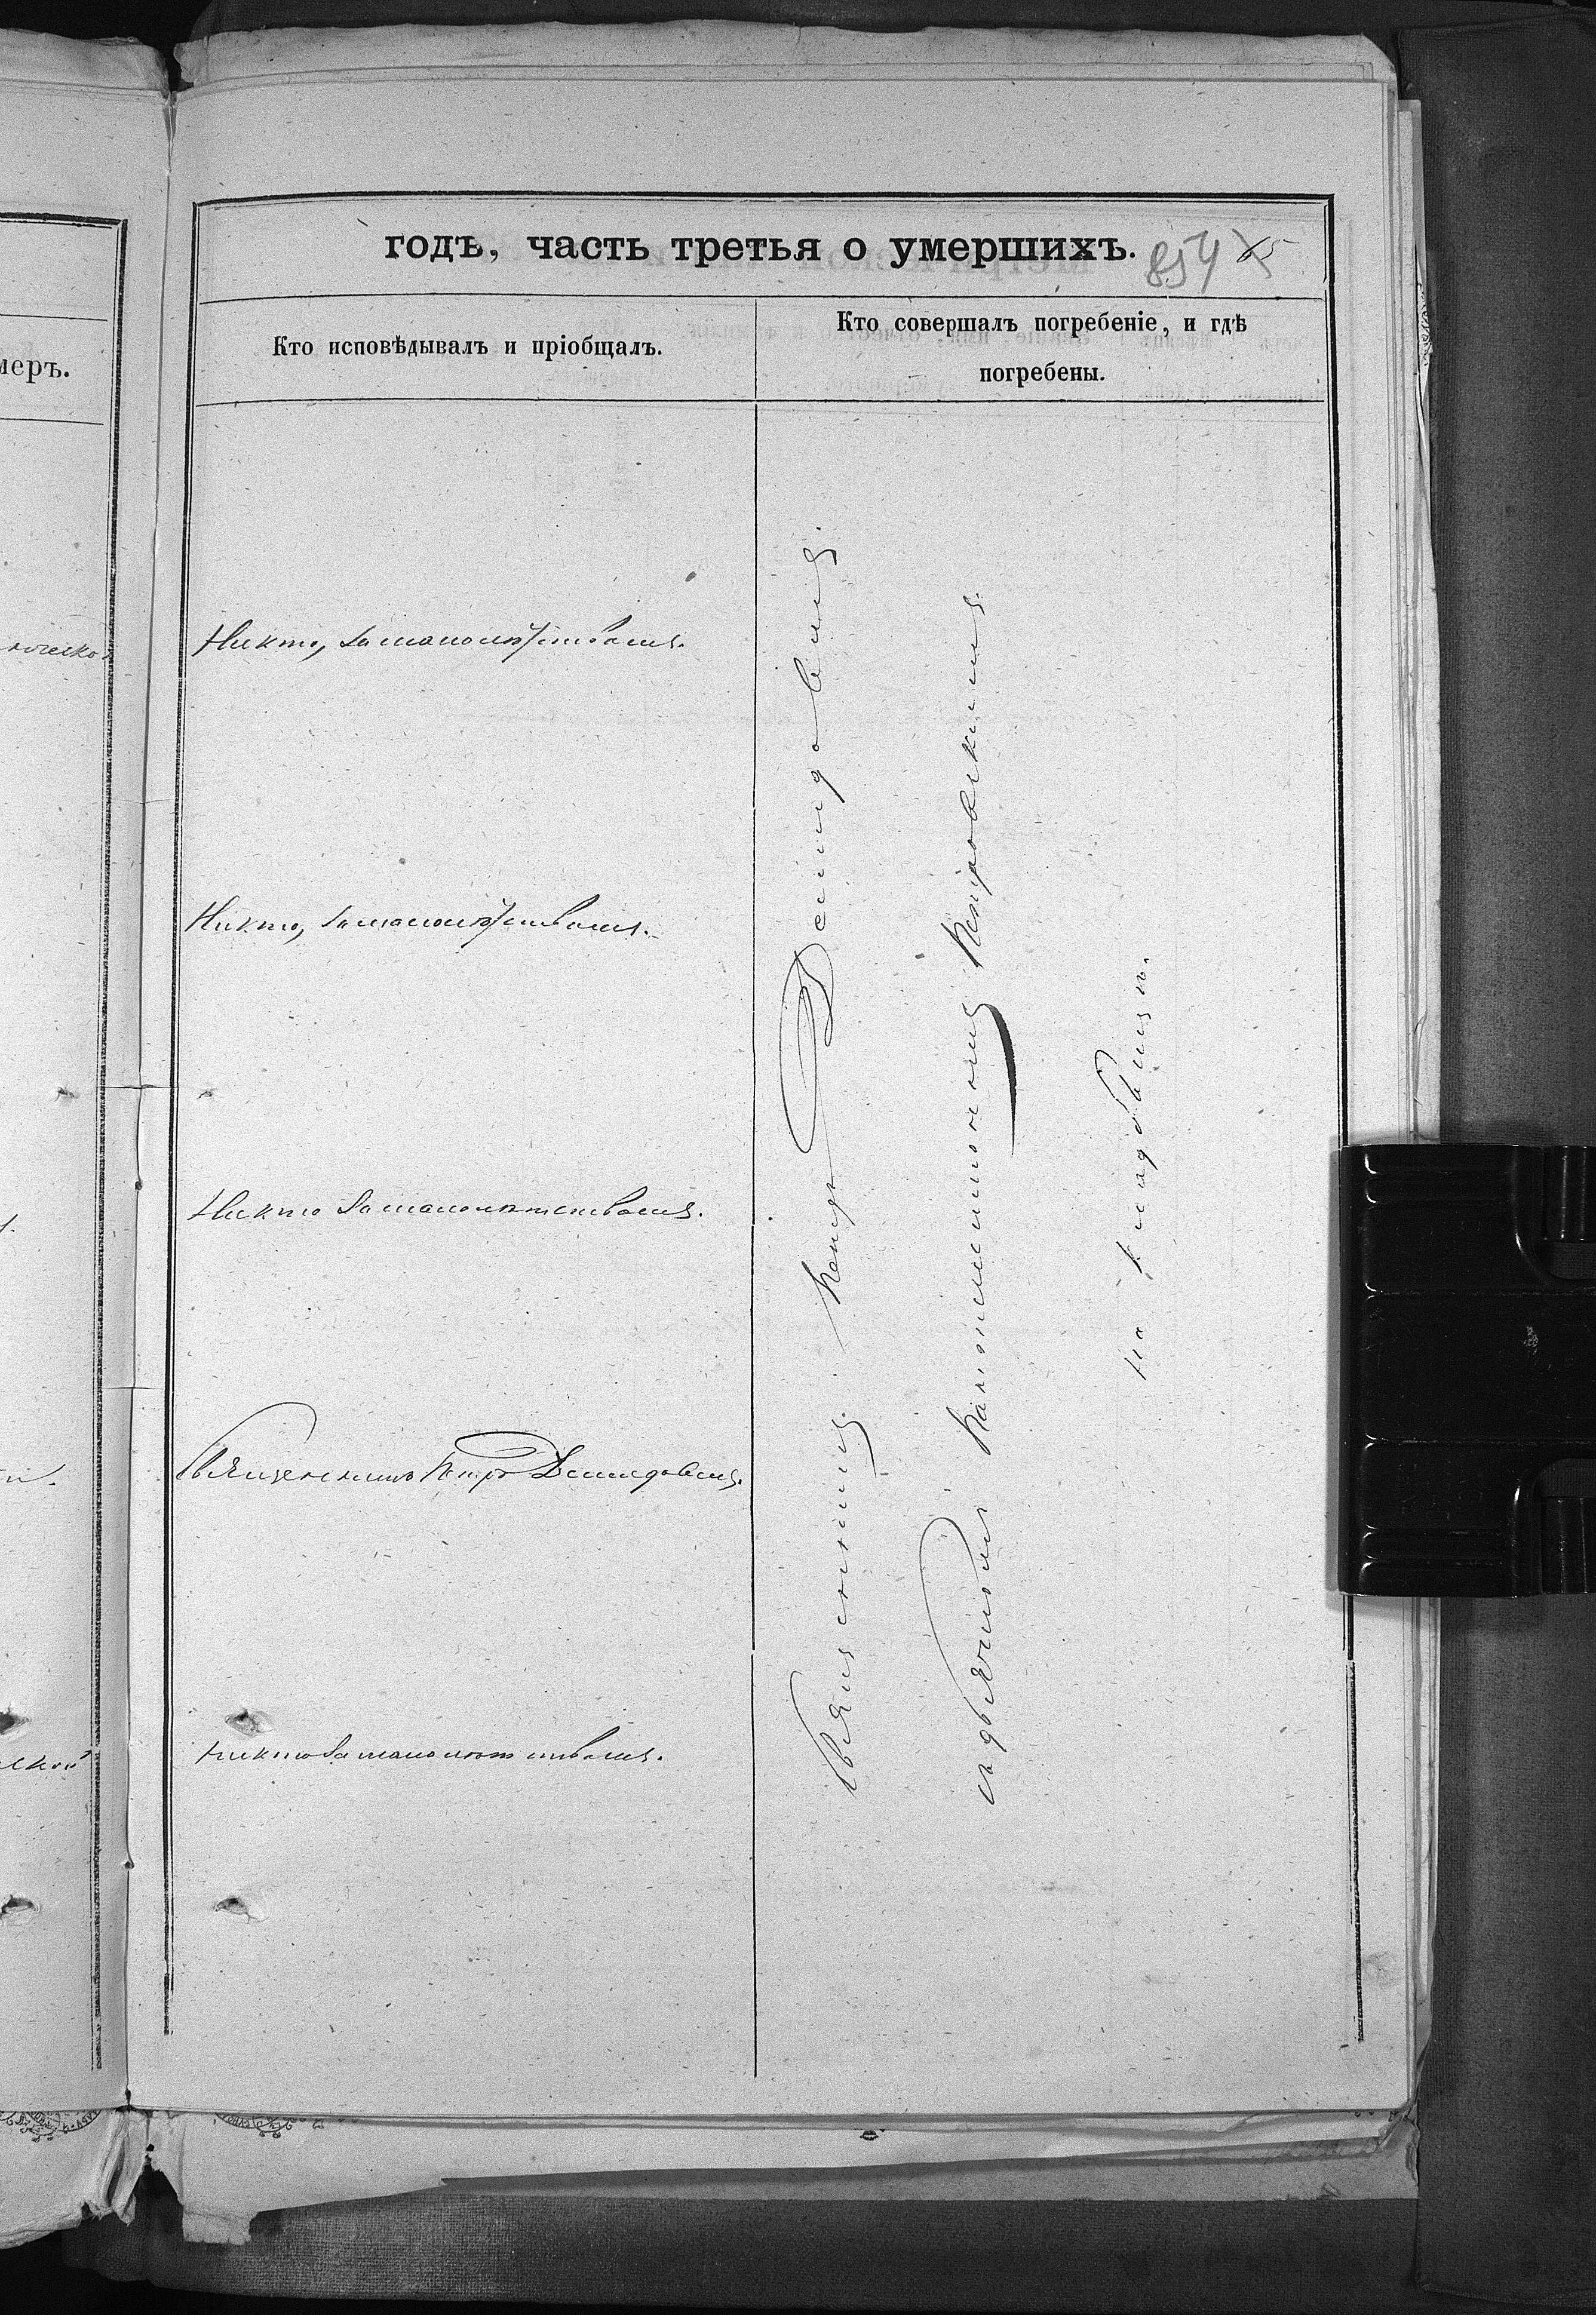 годъ, часть третья о умершихъ. 854 65
Кто исповѣдывалъ и пріобщалъ.
Кто совершалъ погребеніе, и гдѣ
погребены.
меръ.
Никто, за малолѣтствомъ.
Никто, за малолѣтствомъ.
Никто за малолѣтствомъ.
Священникъ Петръ Демидовичъ.
Никто за малолѣтствомъ.
Священникъ Петръ Демидовичъ
съ дьячкомъ
на кладбищѣ.